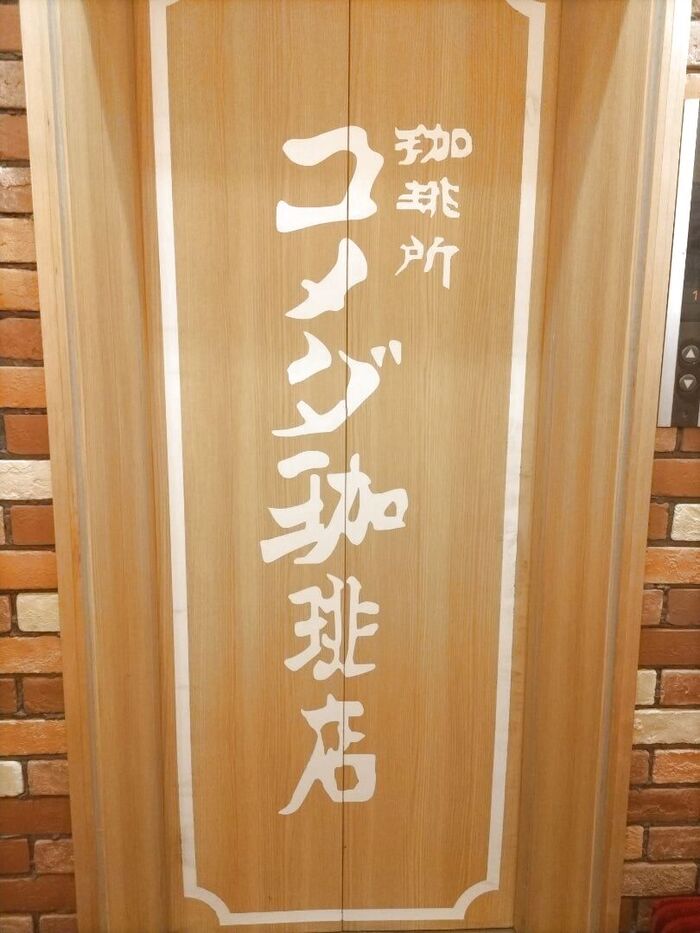 珈琲所
コメダ珈琲店